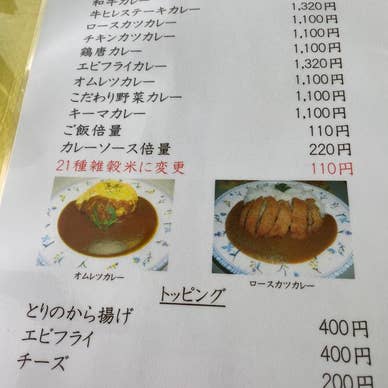 和牛カレー
牛ヒレステーキカレー 1,320円
ロースカツカレー 1,100円
チキンカツカレー 1,100円
鶏唐カレー 1,100円
エビフライカレー 1,320円
オムレツカレー 1,100円
こだわり野菜カレー 1,100円
キーマカレー 1,100円
ご飯倍量 110円
カレーソース倍量 220円
21種雑穀米に変更 110円
オムレツカレー ロースカツカレー
トッピング
とりのから揚げ 400円
エビフライ 400円
チーズ 200円